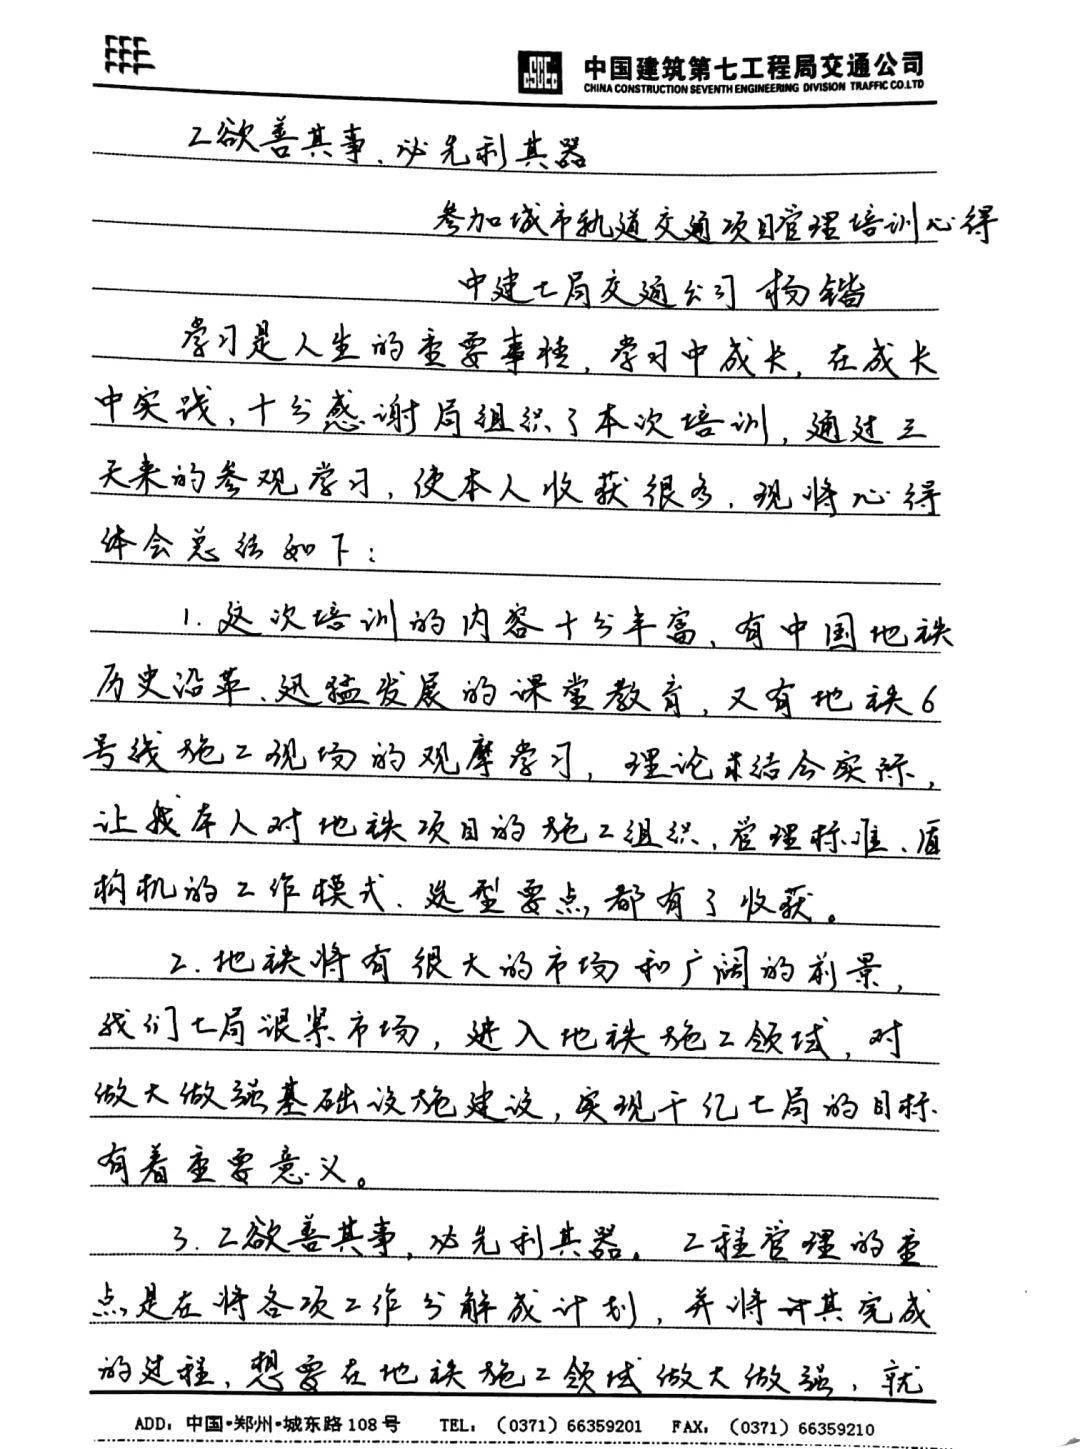 CSCEC
中国建筑第七工程局交通公司
CHINA CONSTRUCTION SEVENTH ENGINEERING DIVISION TRAFFIC CO.LTD
工欲善其事、必先利其器
参加城市轨道交通项目管理培训心得
中建七局交通公司 杨锴
学习是人生的重要事情，学习中成长，在成长
中实践，十分感谢局组织了本次培训，通过三
天来的参观学习，使本人收获很多，现将心得
体会总结如下：
1. 这次培训的内容十分丰富，有中国地铁
历史沿革、迅猛发展的课堂教育，又有地铁6
号线施工现场的观摩学习，理论来结合实际，
让我本人对地铁项目的施工组织、管理标准、盾
构机的工作模式、选型要点，都有了收获。
2. 地铁将有很大的市场和广阔的前景，
我们七局跟紧市场，进入地铁施工领域，对
做大做强基础设施建设，实现千亿七局的目标
有着重要意义。
3. 工欲善其事，必先利其器。工程管理的重
点是在将各项工作分解成计划，并将其完成
的过程，想要在地铁施工领域做大做强，就
ADD：中国·郑州·城东路108号 TEL：（0371）66359201 FAX：（0371）66359210